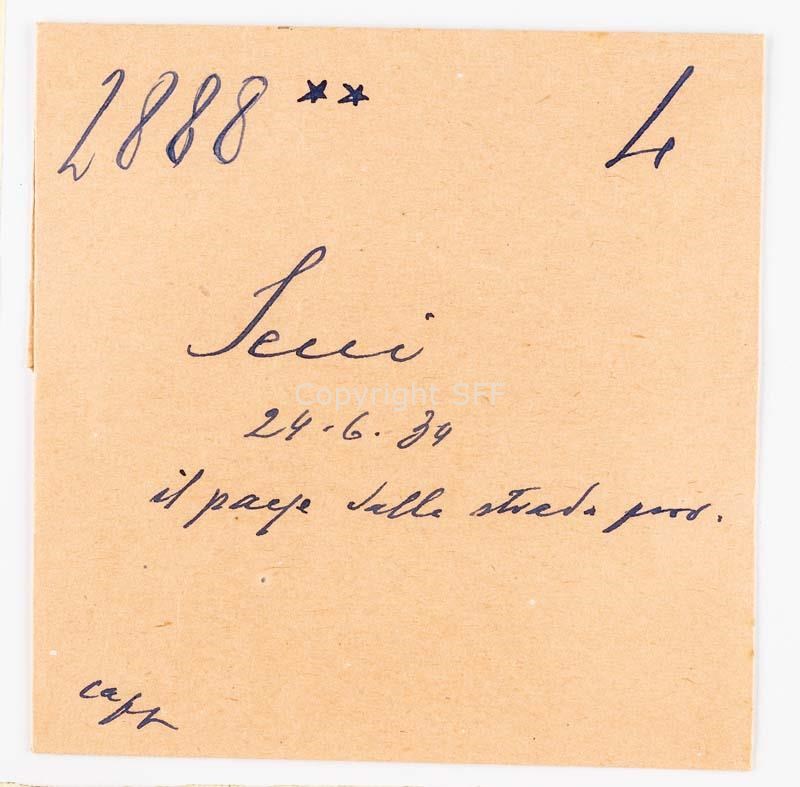 2888 ** 4
Serri
Copyright SFF
24.6.34
il paese dalla strada prov.